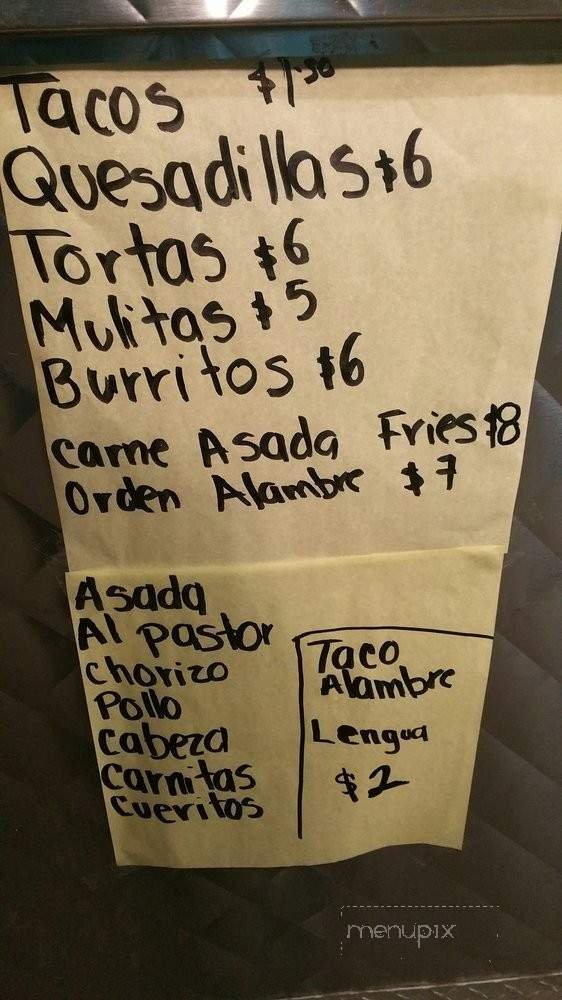 Tacos $1.50
Quesadillas $6
Tortas $6
Mulitas $5
Burritos $6
Carne Asada Fries $8
Orden Alambre $7
Asada
Al pastor
Chorizo
Pollo
Cabeza
Carnitas
Cueritos
Taco
Alambre
Lengua
$2
menupix